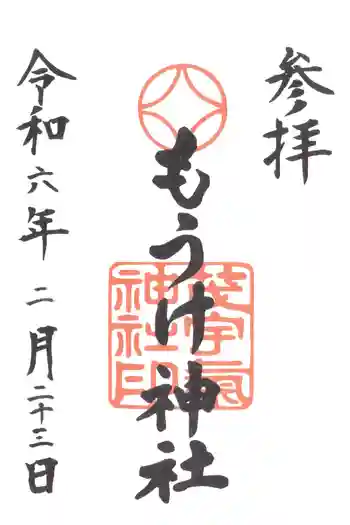 参拝
もうけ神社
茂宇気神社印
令和六年二月二十三日